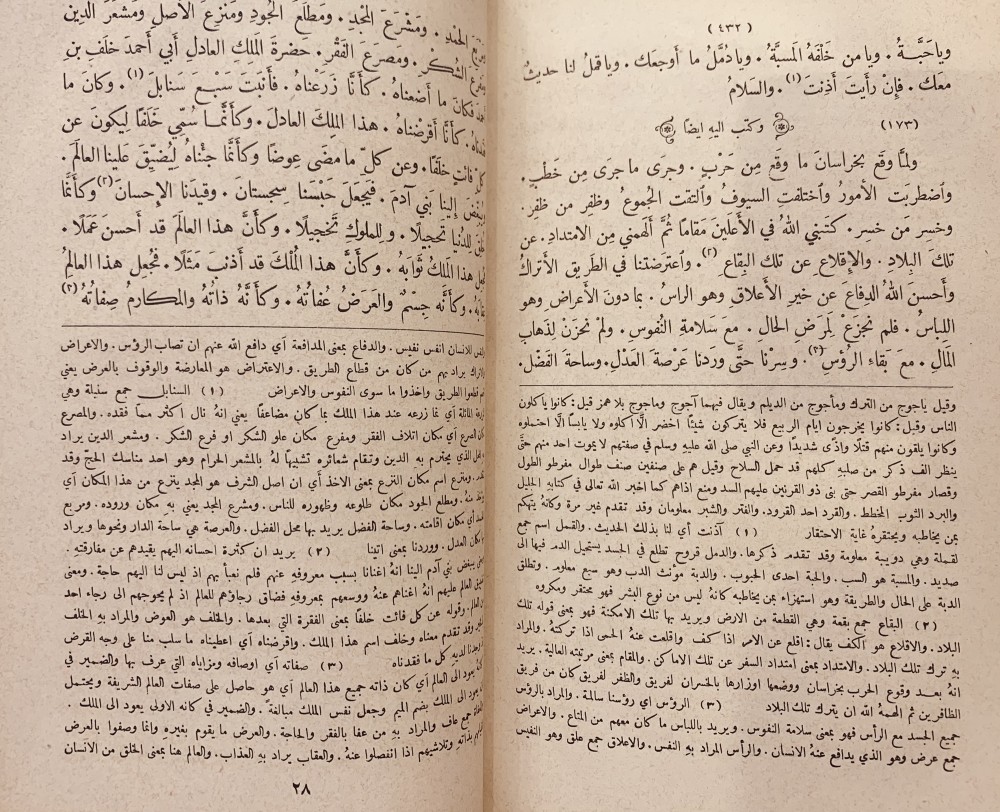 ( ٤٣٢ )
وياحَبَّةُ . ويامن خَلْفَهُ المَسبَّةُ . ويا دُمَّلُ ما أوجعك . ويا قملُ لنا حديثٌ
معك . فإِنْ رأيتَ أَذِنتَ (١) . والسلامُ
(١٧٣) وكتب اليهِ ايضًا
ولمَّا وقع بخراسانَ ما وقع مِن حَرْبٍ . وجرَى ما جرى مِن خَطْبٍ .
وٱضطربَتِ الأمورُ وٱختلفتِ السيوفُ وٱلتقت الجُموعُ وظفر مَن ظفِر .
وخسر مَن خسر . كتبني اللهُ في الأَعلَينَ مَقامًا ثُمَّ أَلهمني مِن الامتدادِ . عن
تلكَ البِلادِ . والإِقلاعِ عن تلك البِقاعِ (٢) . وٱعترضتنا في الطريقِ الأتراكُ
وأَحسنَ اللهُ الدِفاعَ عن خيرِ الأَعلاقِ وهو الراسُ . بما دونَ الأَعراضِ وهو
اللباسُ . فلم نجزَعْ لِمرَضِ الحالِ . معَ سلامةِ النُفوسِ . ولم نَحزَنْ لِذهابِ
المَالِ . معَ بقاءِ الرُؤُسِ (٣) . وسِرْنا حتَّى وردنا عَرْصةَ العَدْلِ . وساحةَ الفَضْلِ .
وقيل ياجوج من الترك ومأجوج من الديلم ويقال فيهما آجوج وماجوج بلا همز قيل : كانوا يأكلون
الناس وقيل : كانوا يخرجون ايام الربيع فلا يتركون شيئًا اخضر الَّا اكلوه ولا يابسًا الَّا احتملوه
وكانوا يلقون منهم قتلًا واذًى شديدًا وعن النبي صلى الله عليهِ وسلم في صفتهم لا يموت احد منهم حتَّى
ينظر الف ذكر من صلبهِ كلهم قد حمل السلاح وقيل هم على صنفين صنف طوال مفرطو الطول
وقصار مفرطو القصر حتى بنى ذو القرنين عليهم السد ومنع اذاهم كما اخبر الله تعالى في كتابه الجليل
والبرد الثوب المخطط . والقرد احد القرود . والفتر والشبر معلومان وقد تقدم غير مرة وكانهُ يتهكم
بمن يخاطبه ويحتقرهُ غاية الاحتقار (١) آذنت أي لنا بذلك الحديث . والقمل اسم جمع
لقملة وهي دويبة معلومة وقد تقدم ذكرها . والدمل قروح تطلع في الجسد يستحيل الدم فيها الى
صديد . والمسبة هو السب . والحبة احدى الحبوب . والدبة مونث الدب وهو سبع معلوم . وتطلق
الدبة على الحال والطريقة وهو استهزاء بمن يخاطبه كانهُ ليس من نوع البشر فهو محتقر ومكروه
(٢) البقاع جمع بقعة وهي القطعة من الارض ويريد بها تلك الامكنة فهو بمعنى قوله تلك
البلاد . والاقلاع هو الكف يقال : اقلع عن الامر اذا كف واقلعت عنهُ الحمى اذا تركتهُ . والمراد
بهِ ترك تلك البلاد . والامتداد بمعنى امتداد السفر عن تلك الاماكن . والمقام بمعنى مرتبته العالية . يريد
انهُ بعد وقوع الحرب بخراسان ووضعها اوزارها بالخسران لفريق والظفر لفريق كان من فريق
الظافرين ثم الهمهُ الله ان يترك تلك البلاد (٣) الرؤس اي رؤسنا سالمة . والمراد بالرؤس
جميع الجسد مع الرأس فهو بمعنى سلامة النفوس . ويريد باللباس ما كان معهم من المتاع . والاعراض
جمع عرض وهو الذي يدافع عنهُ الانسان . والرأس المراد بهِ النفس . والاعلاق جمع علق وهو النفيس
الحَمْدِ . ومَشْرَعَ المَجْدِ . ومَطْلَعَ الجُودِ ومَنْزِعَ الأصلِ ومَشْعَرَ الدِينِ
الشُكْرِ . ومَصرَعَ الفَقْرِ . حضرةَ المَلِكِ العادلِ أَبي أَحمدَ خلَفِ بنِ
فكانَ ما أَضعناهُ . كأَنَّا زَرَعْناهُ . فأَنبَتَ سَبْعَ سَنابلَ (١) . وكان ما
كأَنَّا أقرَضْناهُ . هذا المَلِكَ العادلَ . وكأَنَّما سُمِّي خَلَفًا لِيكونَ عن
فائتٍ خلَفًا . وعن كلِّ ما مضَى عِوضًا وكأَنَّما جِئْناهُ لِيُضيِّقَ علينا العالَمَ .
إِلينا بَني آدَمَ . فيَجعلَ حَبْسَنا سِجِستانَ . وقيدَنا الإِحسانَ (٢) وكأَنَّما
لِلدُنيا تحجيلًا . و لِلملوكِ تخجيلًا . وكأَنَّ هذا العالَمَ قد أَحسنَ عَمَلًا .
هذا المَلكُ ثَوابَهُ . وكأَنَّ هذا المُلْكَ قد أَذنبَ مَثَلًا . فجُعل هذا العالَمُ
وكأَنَّهُ جِسْمٌ والعَرَضُ عُفاتُهُ . وكأَنَّهُ ذاتُهُ والمَكارمُ صِفاتُهُ (٣)
للانسان انفس نفيس . والدفاع بمعنى المدافعة اي دافع الله عنهم ان تصاب الرؤس . والاعراض
يراد بهم من كان من قطاع الطريق . والاعتراض هو المعارضة والوقوف بالعرض يعني
قطعوا الطريق واخذوا ما سوى النفوس والاعراض (١) السنابل جمع سنبلة وهي
أي نما زرعه عند هذا الملك بما كان مضاعفًا يعني انهُ نال اكثر ممَّا فقده . والمصرع
المصرع اي مكان اتلاف الفقر . ومفرع مكان علو الشكر او فرع الشكر . ومشعر الدين يراد
الذي يحترم بهِ الدين وتقام شعائره تشبيهًا لهُ بالمشعر الحرام وهو احد مناسك الحج وقد
ومنزع اسم مكان النزع بمعنى الاخذ أي ان اصل الشرف هو المجد ينزع من هذا المكان أي
منهُ . ومطلع الجود مكان طلوعه وظهوره للناس . ومشرع المجد يعني بهِ مكان وروده . ومربع
اي مكان اقامته . وساحة الفضل يريد بها محل الفضل . والعرصة هي ساحة الدار ونحوها ويراد
مكان العدل . ووردنا بمعنى اتينا (٢) يريد ان كثرة احسانه اليهم يقيدهم عن مفارقته .
يبغض بني آدم الينا انهُ اغنانا بسبب معروفهِ عنهم فلم نعبأ بهم اذ ليس لنا اليهم حاجة . ومعنى
العالم عليهم انهُ اغناهم عنهُ ووسعهم بمعروفهِ فضاق رجاؤهم للعالم اذ لم يحوجهم الى رجاء احد
وقوله عن كل فائت خلفًا بمعنى الفقرة التي بعدها . والخلف هو العوض والمراد بهِ الخلف
وقد تقدم معناه وخلف اسم هذا الملك . واقرضناه اي اعطيناه ما سلب منا على وجه القرض
لديهِ كل ما فقدناه (٣) صفاته اي اوصافه ومزاياه التي عرف بها والضمير في
يعود الى العالم اي كان ذاته جميع هذا العالم اي هو حاصل على صفات العالم الشريفة ويحتمل
الى الملك بضم الميم وجعل نفس الملك مبالغةً . والضمير في كانه الاولى يعود الى الملك .
جمع عاف والمراد بهِ من عفا بالفقر والحاجة . والعرض ما يقوم بغيره وانما وصفوا بالعرض
بذاته وتلاشيهم اذا انفصلوا عنهُ . والعقاب يراد بهِ العذاب . والعالم هنا بمعنى الخلق من الانسان
٢٨